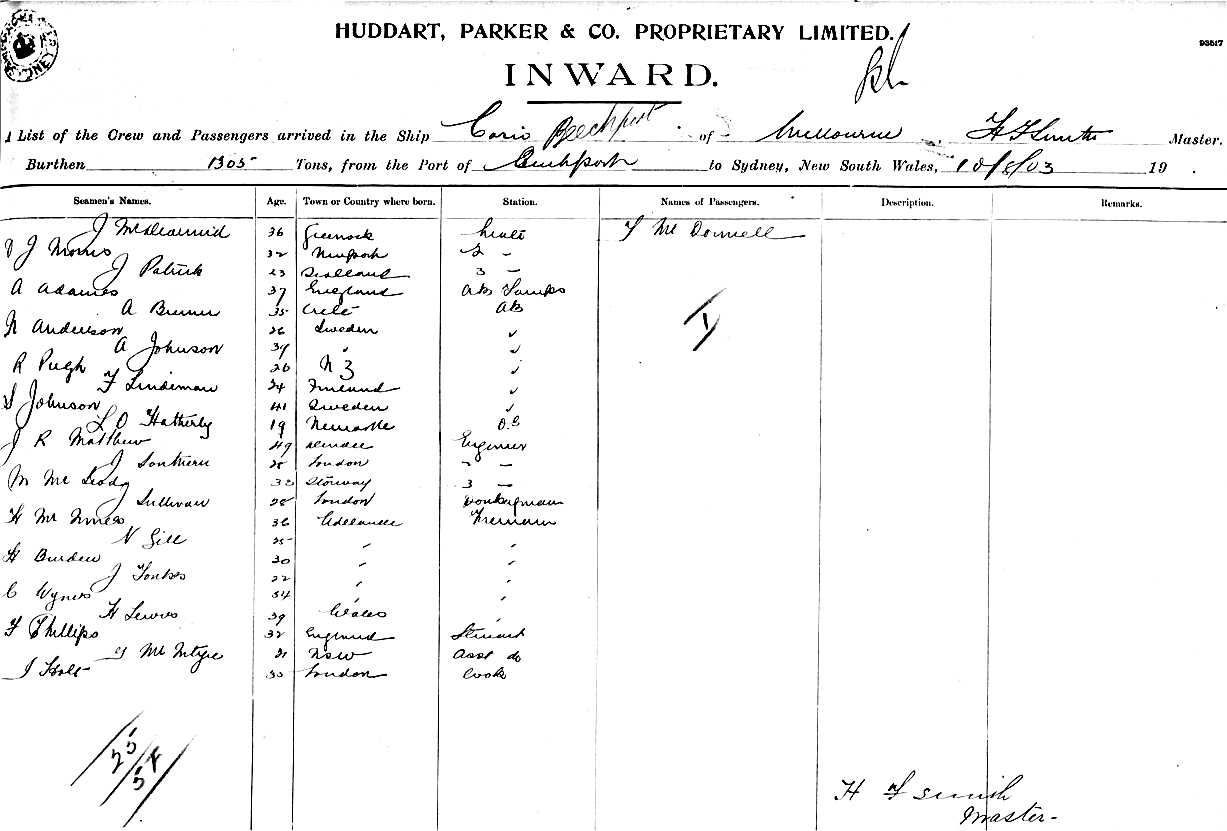 HUDDART, PARKER & CO. PROPRIETARY LIMITED.
93517
INWARD.
List of the Crew and Passengers arrived in the Ship Corio Beechport of Melbourne, H F Smith Master.
Burthen 1305 Tons, from the Port of to Sydney, New South Wales, 10/6/03 19 .
Seamen's Names. Age. Town or Country where born. Station. Names of Passengers. Description. Remarks.
J McDearmid 36 Greenock Mate F Mc Donnell
J Morris 32 Newport 2 -
J Patrick 23 Scotland 3 -
A Adames 37 England AB Lamps
A 35 AB
N Anderson 26 Sweden ✓
A Johnson 39 " ✓
R Pugh 26 N Z ✓
F Lindeman 24 Finland ✓
Johnson 41 Sweden ✓
L O Hatherly 19 Newcastle O.S
J R Matthew 49 Dundee Engineer
J Southern 25 London 2 -
M Mc Leod 33 Stornway 3 -
J Sullivan 28 London Donkeyman
H Mc Innes 36 Adelaide Fireman
N Gill 25 " "
H Burden 30 " "
J Tonkes 22 " "
C Wynes 34 " "
H Lewis 39 Wales "
F Phillips 32 England Steward
Mc Intyre 21 NSW Asst do
J Holt 30 London Cook
1
25/
54/
H F Smith
Master-